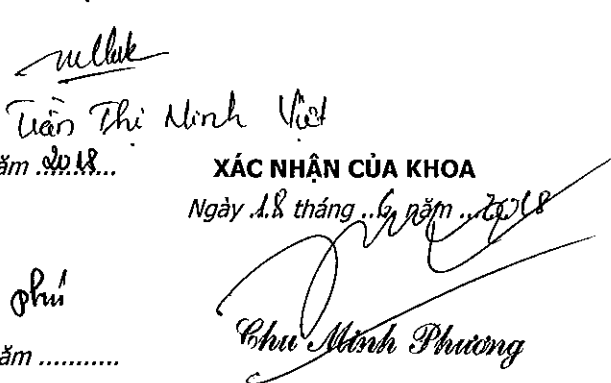 Trần Thị Minh Việt
ăm 2018
XÁC NHẬN CỦA KHOA
Ngày 18 tháng 6 năm 2018
phú
Chu Minh Phương
ăm ...........